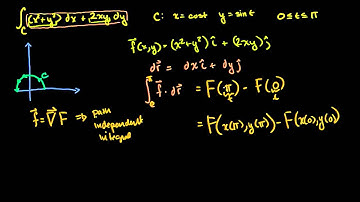 ∫_C (x²+y²) dx + 2xy dy
C: x=cost y=sint 0≤t≤π
f⃗(x,y)=(x²+y²) î + (2xy) ĵ
dr⃗ = dx î + dy ĵ
C
∫ f⃗·dr⃗ = F(π) − F(0)
t t
f⃗ = ∇⃗F ⇒ Path
independent
integral
= F(x(π),y(π)) − F(x(0),y(0))